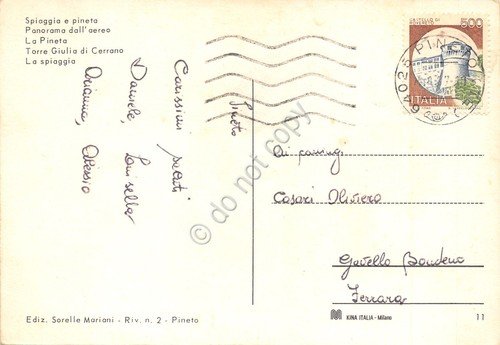 Spiaggia e pineta
Panorama dall'aereo
La Pineta
Torre Giulia di Cerrano
La spiaggia
500
ITALIA
64025 PINETO
Pineto
Carissimi saluti
Daniele, Luisella
Arianna, Alessio
do not copy
Ai coniugi
Casari Oliviero
Gavello Bondeno
Ferrara
Ediz. Sorelle Mariani - Riv. n. 2 - Pineto
KINA ITALIA - Milano
11